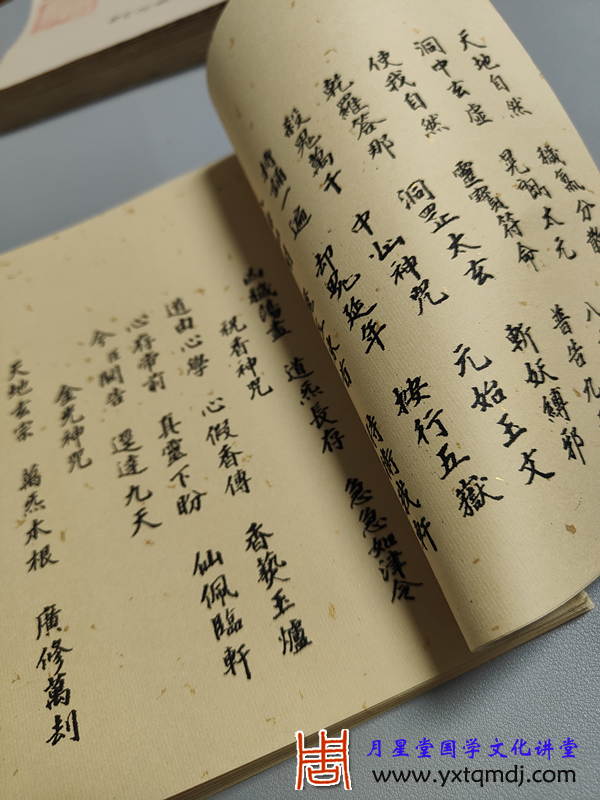 天地自然 穢氣分散
洞中玄虛 晃朗太元 八
使我自然 靈寶符命 普告九
乾羅答那 洞罡太玄 斬妖縛邪
殺鬼萬千 中山神咒 元始玉文
持誦一遍 却鬼延年 按行五嶽
侍衛我軒
凶穢消盪 道炁長存 急急如律令
祝香神咒
道由心學 心假香傳 香爇玉爐
心存帝前 真靈下盼 仙佩臨軒
今臣關告 逕達九天
金光神咒
天地玄宗 萬炁本根 廣修萬劫
月星堂国学文化讲堂
www.yxtqmdj.com